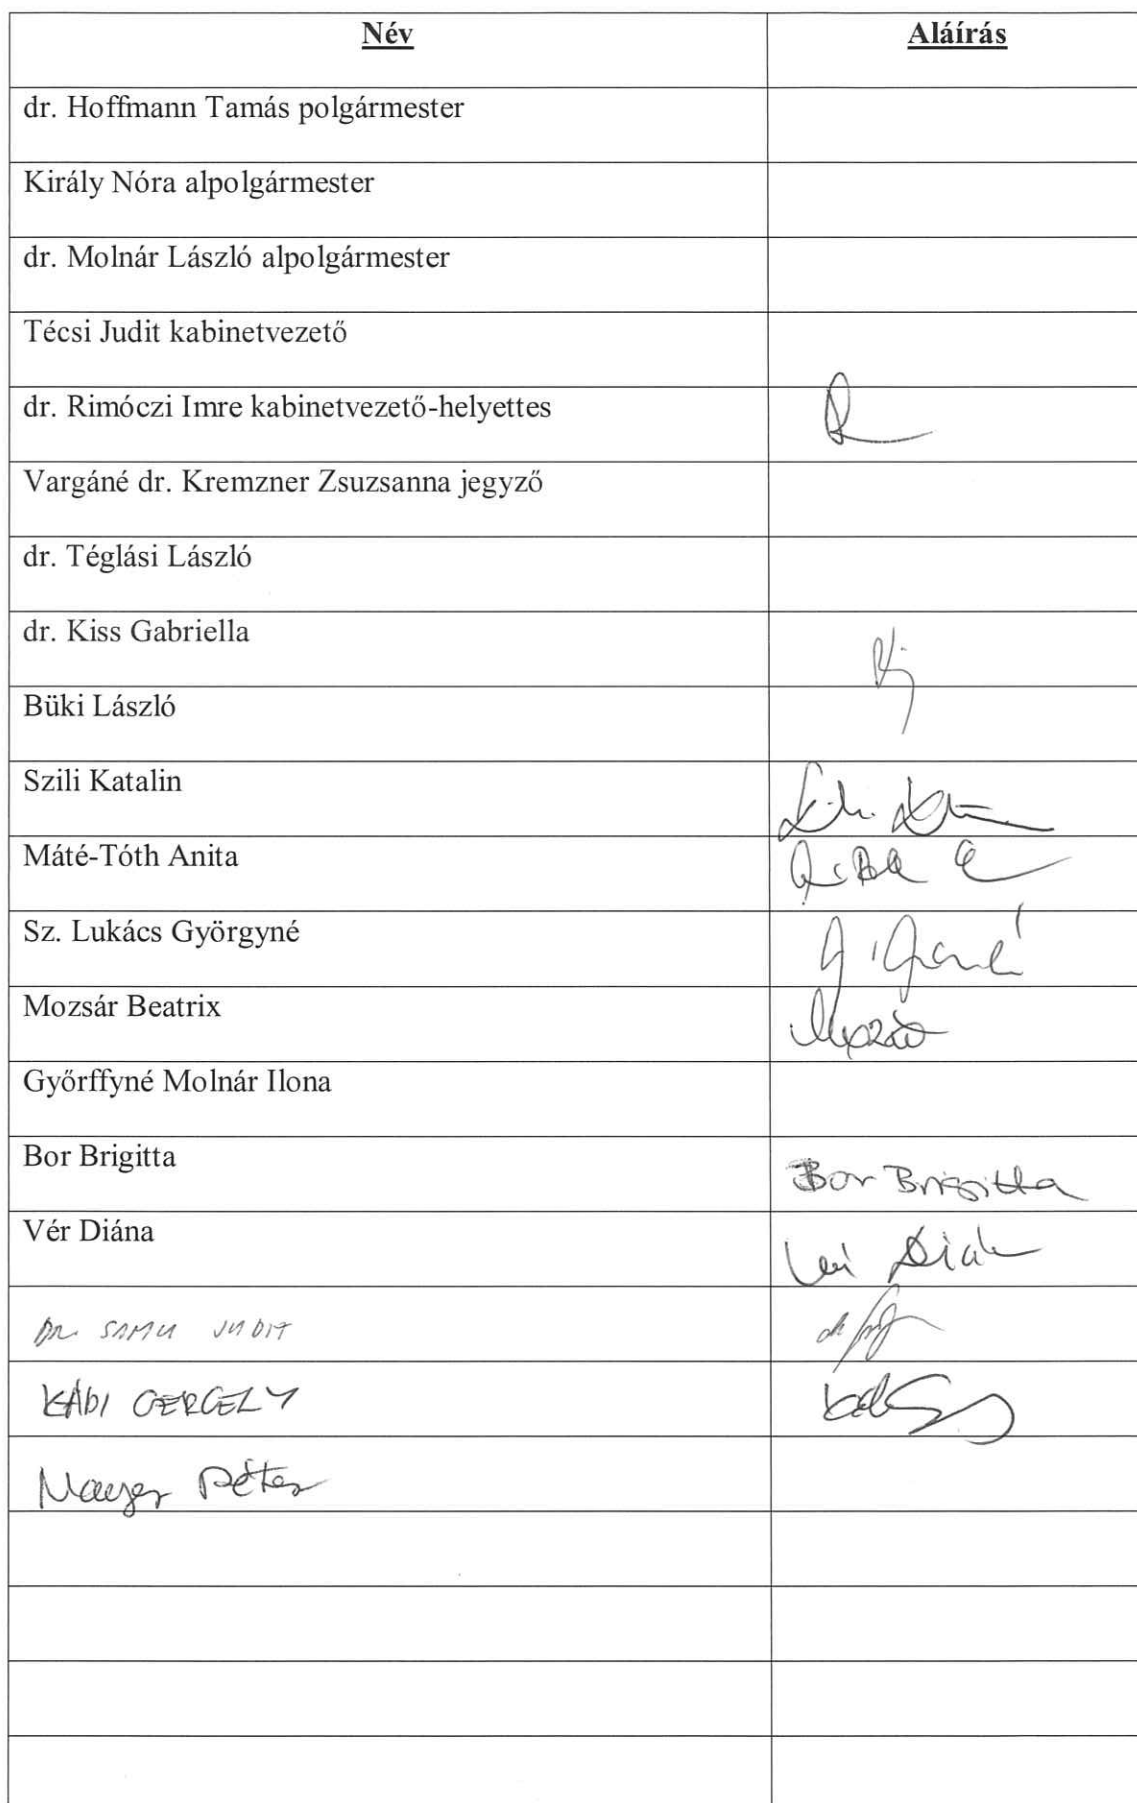 Név Aláírás
dr. Hoffmann Tamás polgármester
Király Nóra alpolgármester
dr. Molnár László alpolgármester
Técsi Judit kabinetvezető
dr. Rimóczi Imre kabinetvezető-helyettes
Vargáné dr. Kremzner Zsuzsanna jegyző
dr. Téglási László
dr. Kiss Gabriella
Büki László
Szili Katalin
Máté-Tóth Anita
Sz. Lukács Györgyné
Mozsár Beatrix
Győrffyné Molnár Ilona
Bor Brigitta Bor Brigitta
Vér Diána
DR. SAMU JUDIT
KÁDI GERGELY
Mayer Péter